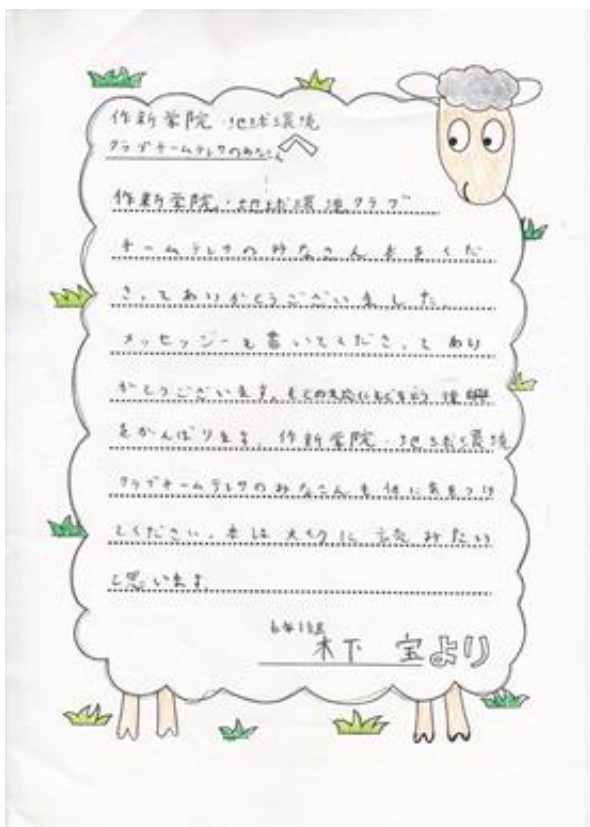 作新学院・地球環境
クラブチームテレサのみなさんへ
作新学院・地球環境クラブ
チームテレサのみなさん本をくだ
さってありがとうございました。
メッセージも書いてくださってあり
がとうございます。もとの大槌にもどるよう復興
をがんばります。作新学院・地球環境
クラブチームテレサのみなさんも体に気をつけ
てください。本は大切に読みたい
と思います。
6年1組
木下 宝より